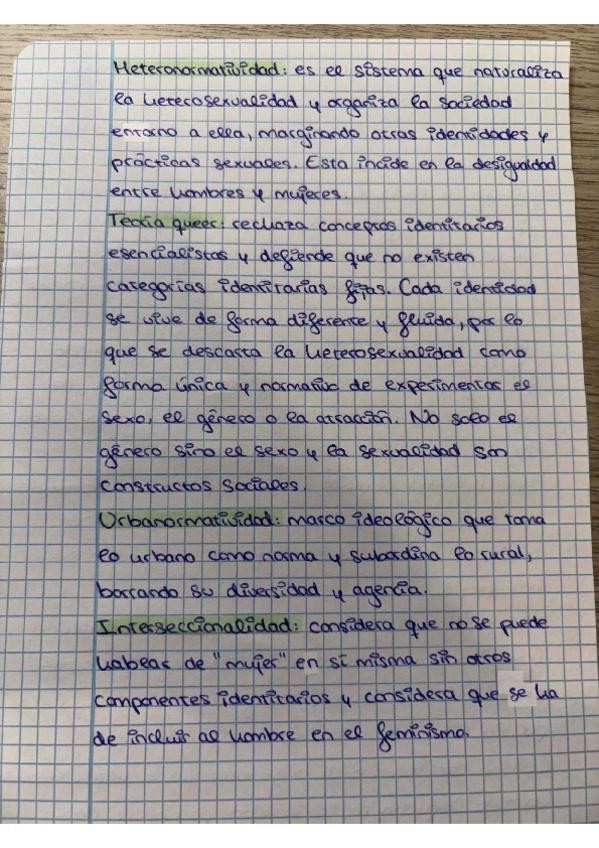 Heteronormatividad: es el sistema que naturaliza
la heterosexualidad y organiza la sociedad
entorno a ella, marginando otras identidades y
prácticas sexuales. Esta incide en la desigualdad
entre hombres y mujeres.
Teoría queer: rechaza conceptos identitarios
esencialistas y defiende que no existen
categorías identitarias fijas. Cada identidad
se vive de forma diferente y fluida, por lo
que se descarta la heterosexualidad como
forma única y normativa de experimentar el
sexo, el género o la atracción. No solo el
género sino el sexo y la sexualidad son
constructos sociales.
Urbanormatividad: marco ideológico que toma
lo urbano como norma y subordina lo rural,
borrando su diversidad y agencia.
Interseccionalidad: considera que no se puede
hablar de "mujer" en sí misma sin otros
componentes identitarios y considera que se ha
de incluir al hombre en el feminismo.